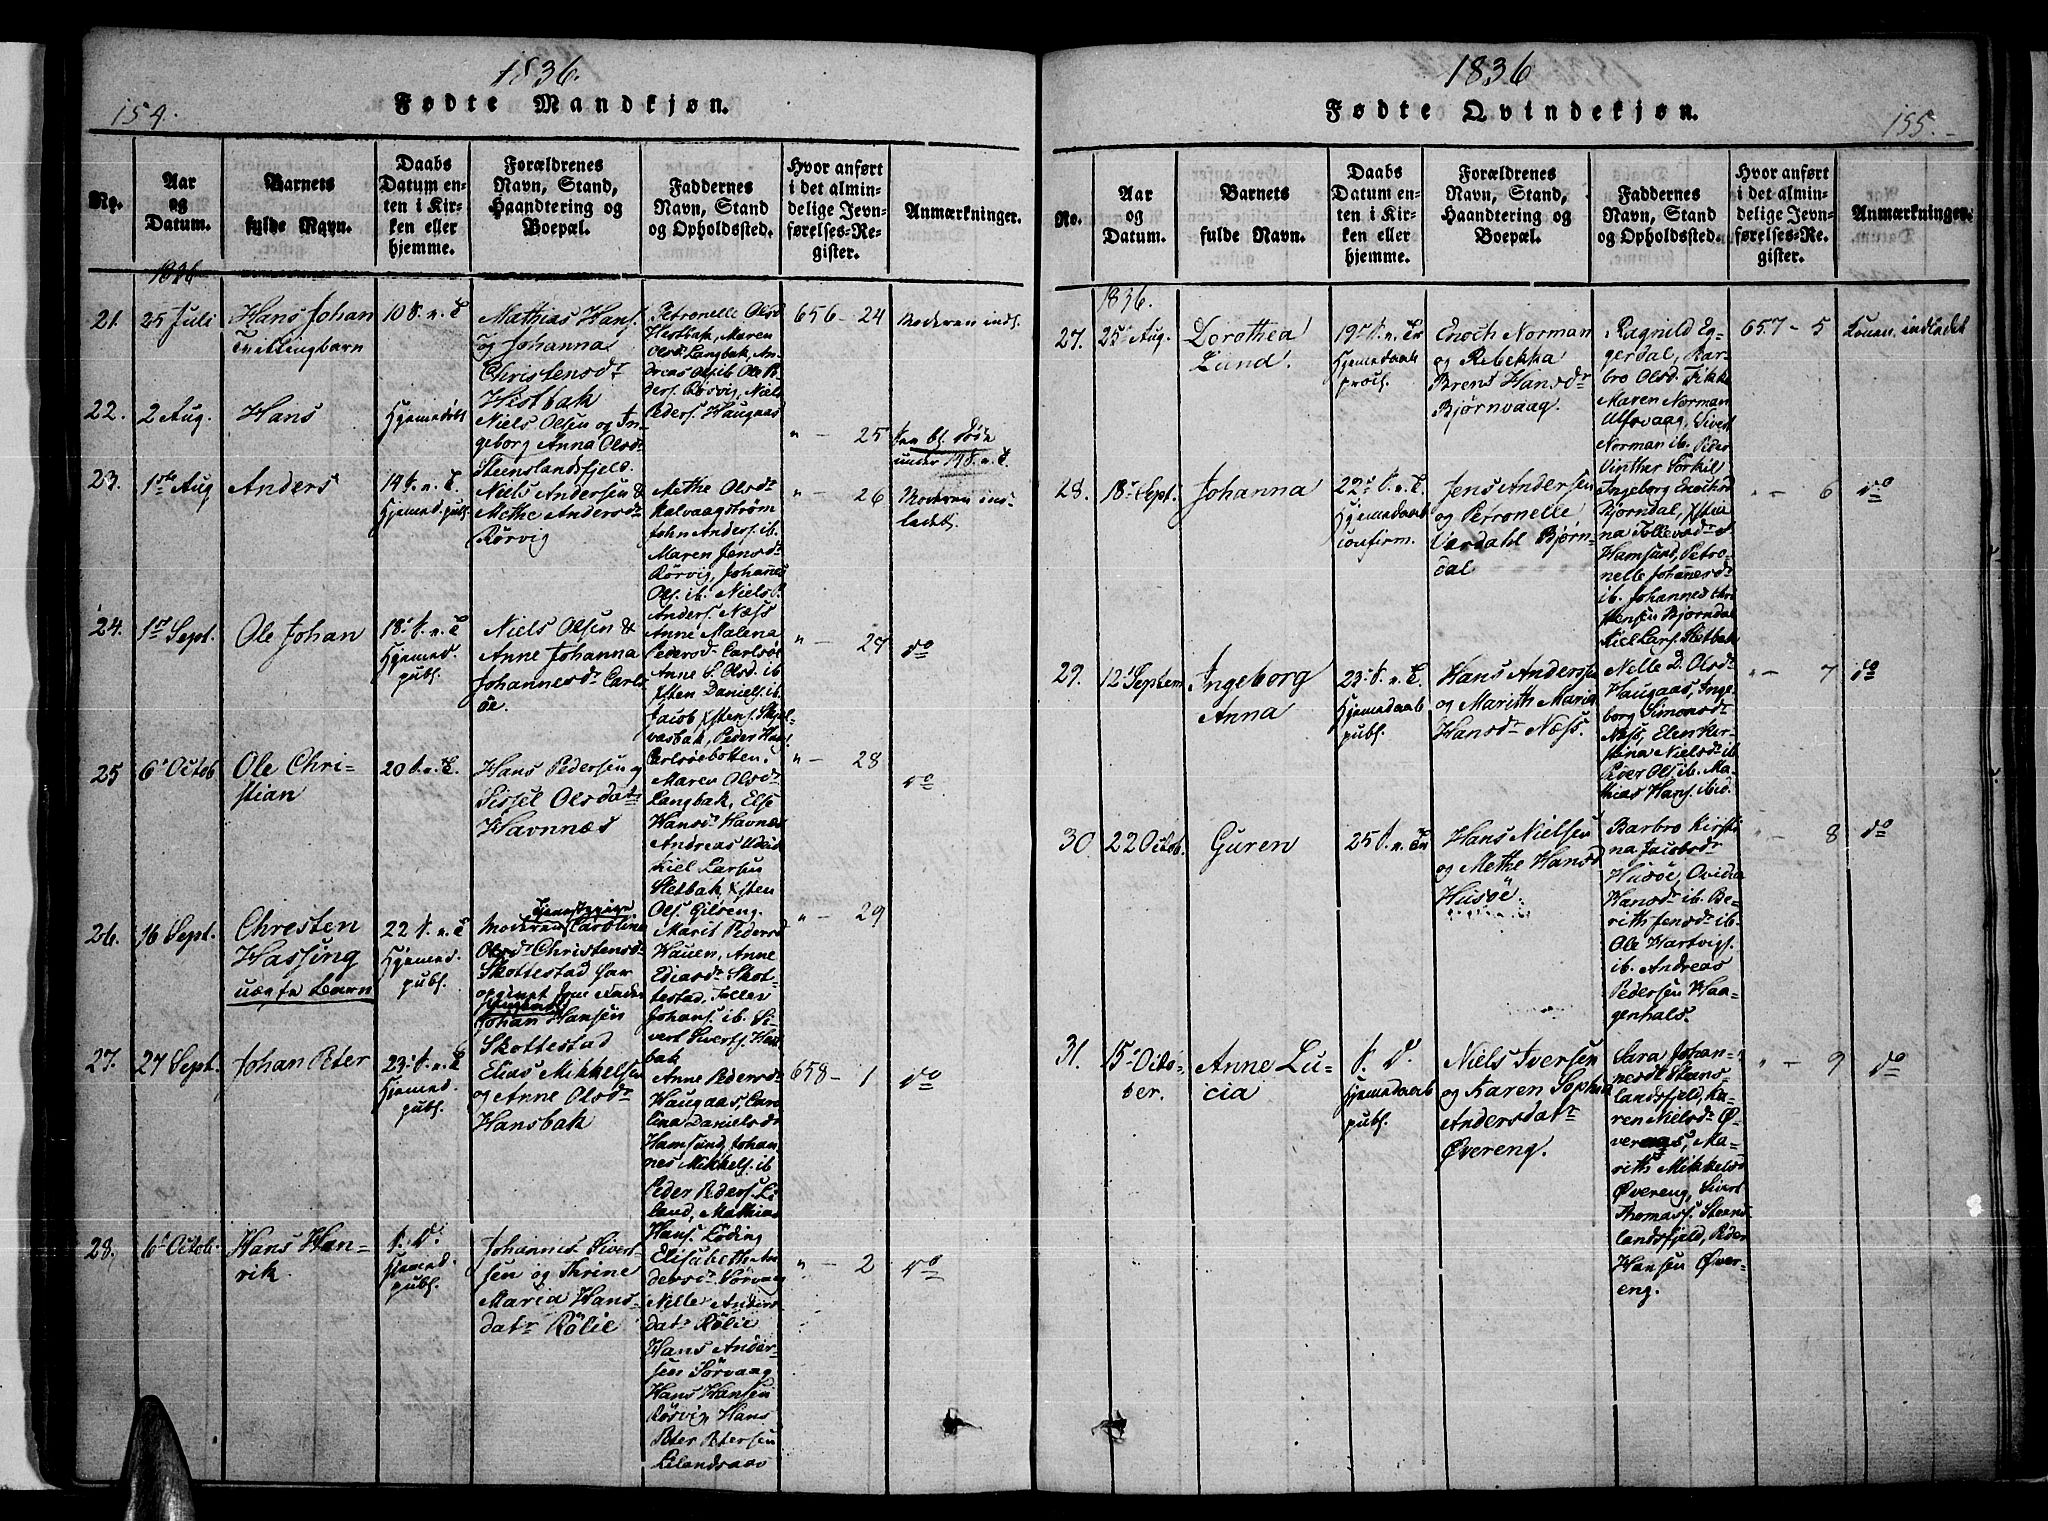 1836.
154.
Fødte Mandkjøn.
No.
Aar
og
Datum.
Barnets
fulde Navn.
Daabs
Datum en-
ten i Kir-
ken eller
hjemme.
Forældrenes
Navn, Stand,
Haandtering og
Boepæl.
Faddernes
Navn, Stand
og Opholdssted.
Hvor anført
i det almin-
delige Jevn-
førelses-Re-
gister.
Anmærkninger.
1836
21.
25 Juli
Hans Johan
Tvellingbarn
Mathias Hans.
og Johanna
Christensdr
Histbak
Petronelle Olsd
Hestbak, Maren
Olsd. Langbak, An-
dreas Ols ib Ole Pe
ders. Rörvig, Niels
Peders. Haugaas
656 - 24
Moderen inds.
22.
2 Aug.
Hans
Hjemedöbt
Niels Olsen og In-
geborg Anna Olsdr
Steenslandsfjeld.
" - 25
23.
1ste Aug
Anders
Hjemed. pub.
Niels Andersen &
Methe Andersdr
Rörvig
Methe Olsdr
Kalvaagström
John Anders. ib.
Maren Jensdr
Rörvig, Johannes
Ols. ib. Niels
Anders. Næss
" - 26
Moderen ind-
ledet.
24.
1ste Sept.
Ole Johan
Hjemed.
pub.
Niels Olsen &
Anne Johanna
Johannesdr Carls
öe.
Anne Malena
Pedersd. Carlsöe
Anne S. Olsd. ib
Xsten Daniels. ib.
Jacob Xstens. Skjel-
vasbak, Peder Hans.
Carlsöebotten.
" - 27
do
25
6 Octob
Ole Chri-
stian
Hans Pedersen og
Sissel Olsdatr
Havnnæs
Maren Olsdr
Langbak, Else
Hansdr Havnæs
Andreas
Kiel Larsen
Sletbak, Xsten
Ols. Gilseng.
" - 28
do
26.
16 Sept.
Chresten
Hassing
uægte Barn
Hjemed.
pub.
Moderen Caroline
Olsdr Christensdr
Skottestad
Johan Hansen
Skottestad
Marit Pedersd
Hauen, Anne
Ediasdr Skot-
testad, Tollev
Johans. ib. Si-
vert Siverts. Hest
bak
" - 29
27.
27 Sept.
Johan Peter
Hjemed.
pub.
Elias Mikkelsen
og Anne Olsdr
Hansbak
Anne Pedersdr
Haugaas, Caro
lina Danielsdr
Hamsund, Johan-
nes Mikkels. ib
Peder Peders. Li
land, Mathias
Hans. Löding
658 - 1
do
28.
6 Octob
Hans Han-
rik.
Hjemed.
pub.
Johannes Sivert
sen og Thrine
Maria Hans-
datr Rölie
Elisabeth An-
dersdr Sörvaag
Nelle Anders
datr Rölie
Hans Ander-
sen Sörvaag
Hans Hansen
Rörvig, Hans
Peter Petersen
Lilandsaas
" - 2
do
1836
155.
Fødte Qvindekjøn.
No.
Aar
og
Datum.
Barnets
fulde Navn.
Daabs
Datum en-
ten i Kir-
ken eller
hjemme.
Forældrenes
Navn, Stand,
Haandtering og
Boepæl.
Faddernes
Navn, Stand
og Opholdssted.
Hvor anført
i det almin-
delige Jevn-
førelses-Re-
gister.
Anmærkninger.
1836.
27.
25 Aug.
Dorothea
Lund.
Hjemedaab
Enoch Norman
og Rebekka
Brens Hansdr
Bjørnvaag.
Ragnild Eg-
gerdal, Bar-
bro Olsd. Fikke
Maren Norman
Ulfsvaag, Sivert
Norman ib. Peder
Vinther Torkil
657 - 5
Konen indledet
28.
18 Sept.
Johanna
Hjemedaab
confirm.
Jens Andersen
og Petronelle
Værdahl Bjørn-
dal
Ingeborg Enoiksd
Bjørndal, Xsten
na Tollevsdr
Hamsund, Petro-
nelle Johannesdr
ib. Johannes
Hensen Bjorndal
Kiel Lars. Sletbak
" - 6
do
29.
12 Septem
Ingeborg
Anna
Hjemedaab
pub.
Hans Andersen
og Marith Maria
Hansdr Næss.
Nelle D. Olsdr
Haugaas, Inge-
borg Simonsdr
Næss, Elen Ker-
stina Nielsdr ib
Peder Ols ib. Ma-
thias Hans. ibid.
" - 7
do
30.
22 Octob.
Guren
Hans Nielsen
og Methe Hansd
Husöe.
Barbro Kirsti
na Jacobsdr
Husöe, Ovidia
Hansdr ib. Be-
rith Jensdr ib.
Ole Hartvigs.
ib. Andreas
Pedersen Haa-
genhals.
" - 8
do
31.
15 Octo-
ber.
Anne Lu-
cia
Hjemedaab
pub.
Niels Iversen
og Karen Sophia
Andersdatr
Øvereng.
Sara Johan-
nesdr Steens-
landsfjeld, Ka-
ren Nielsdr Ø-
vereng, Ma-
rith Mikkelsd
Øvereng, Sivert
Thomass. Steens
landsfjeld, Peder
Hansen Øver-
eng.
" - 9
do